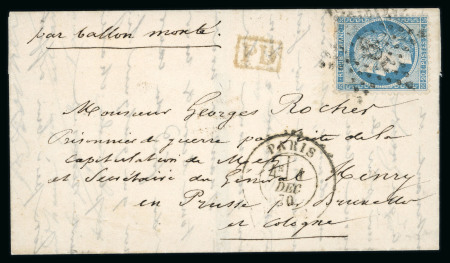 par ballon monté.
PD
Monsieur Georges Rocher
Prisonnier de guerre par suite de la
capitulation de Metz
et Secrétaire du Général Henry
en Prusse par Bruxelles
et Cologne
PARIS
DEC
70